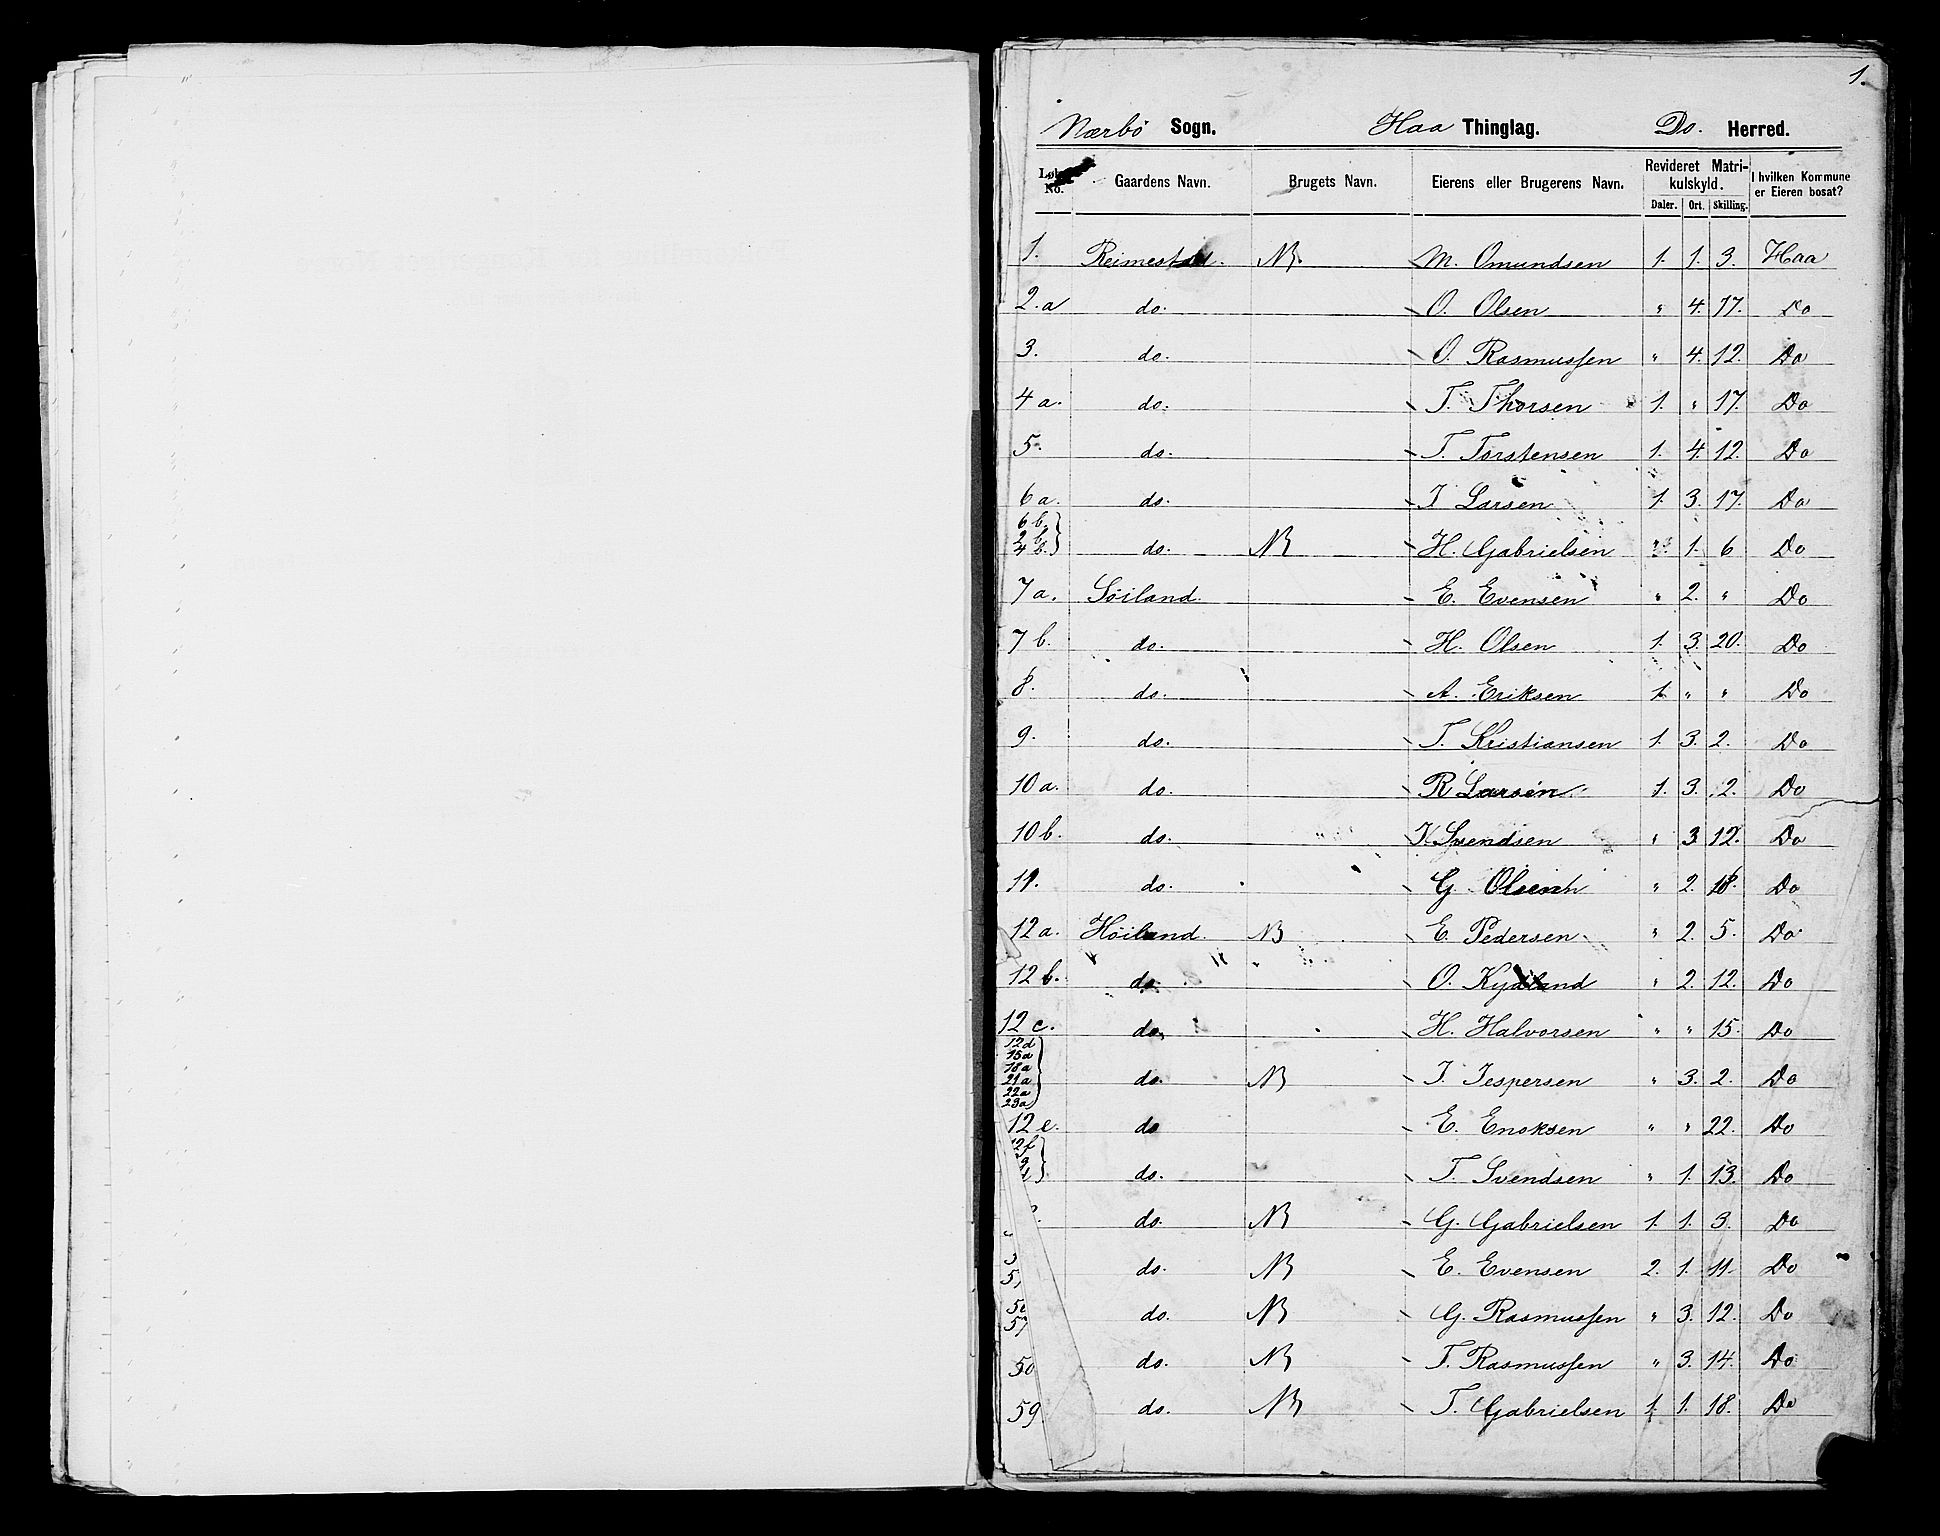 1.
Nærbö Sogn. Haa Thinglag. Do. Herred.
Løbe No. Gaardens Navn. Brugets Navn. Eierens eller Brugerens Navn. Revideret Matrikulskyld. Daler. Ort. Skilling. I hvilken Kommune er Eieren bosat?
1. Reimestad. NB. M. Omundsen 1. 1. 3. Haa
2.a do. O. Olsen " 4. 17. Do
3. do. O. Rasmussen " 4. 12. Do
4 a. do. T. Thorsen 1. " 17. Do
5. do. T. Torstensen 1. 4. 12. Do
6 a. do. T Larsen 1. 3. 17. Do
6 b. 2 b. 4 b. do. NB H. Gabrielsen " 1. 6 Do
7 a. Söiland. E. Evensen " 2. " Do
7 b. do. H. Olsen 1. 3. 20. Do
8. do. A. Eriksen 1. " " Do
9. do. T. Kristiansen 1. 3. 2. Do
10 a. do. R Larsen 1. 3. 2. Do
10 b. do. K Svendsen " 3 12. Do
11. do. G. " 2. 18. Do
12 a. Höiland. NB E. Pedersen " 2. 5. Do
12 b. do. O. Kydland " 2. 12. Do
12 c. do. H. Halvorsen " " 15. Do
12d 15a 18a 21a 22a 23a do. NB J. Jespersen " 3. 2. Do
12 e. do E. Enoksen " " 22. Do
12f do. T. Svendsen " 1. 13. Do
do. NB G. Gabrielsen 1. 1. 3. Do
do. NB E. Evensen 2. 1. 11. Do
do. NB G. Rasmussen " 3. 12. Do
50 do. NB T. Rasmussen " 3. 14. Do
59 do. NB T. Gabrielsen 1. 1. 18. Do